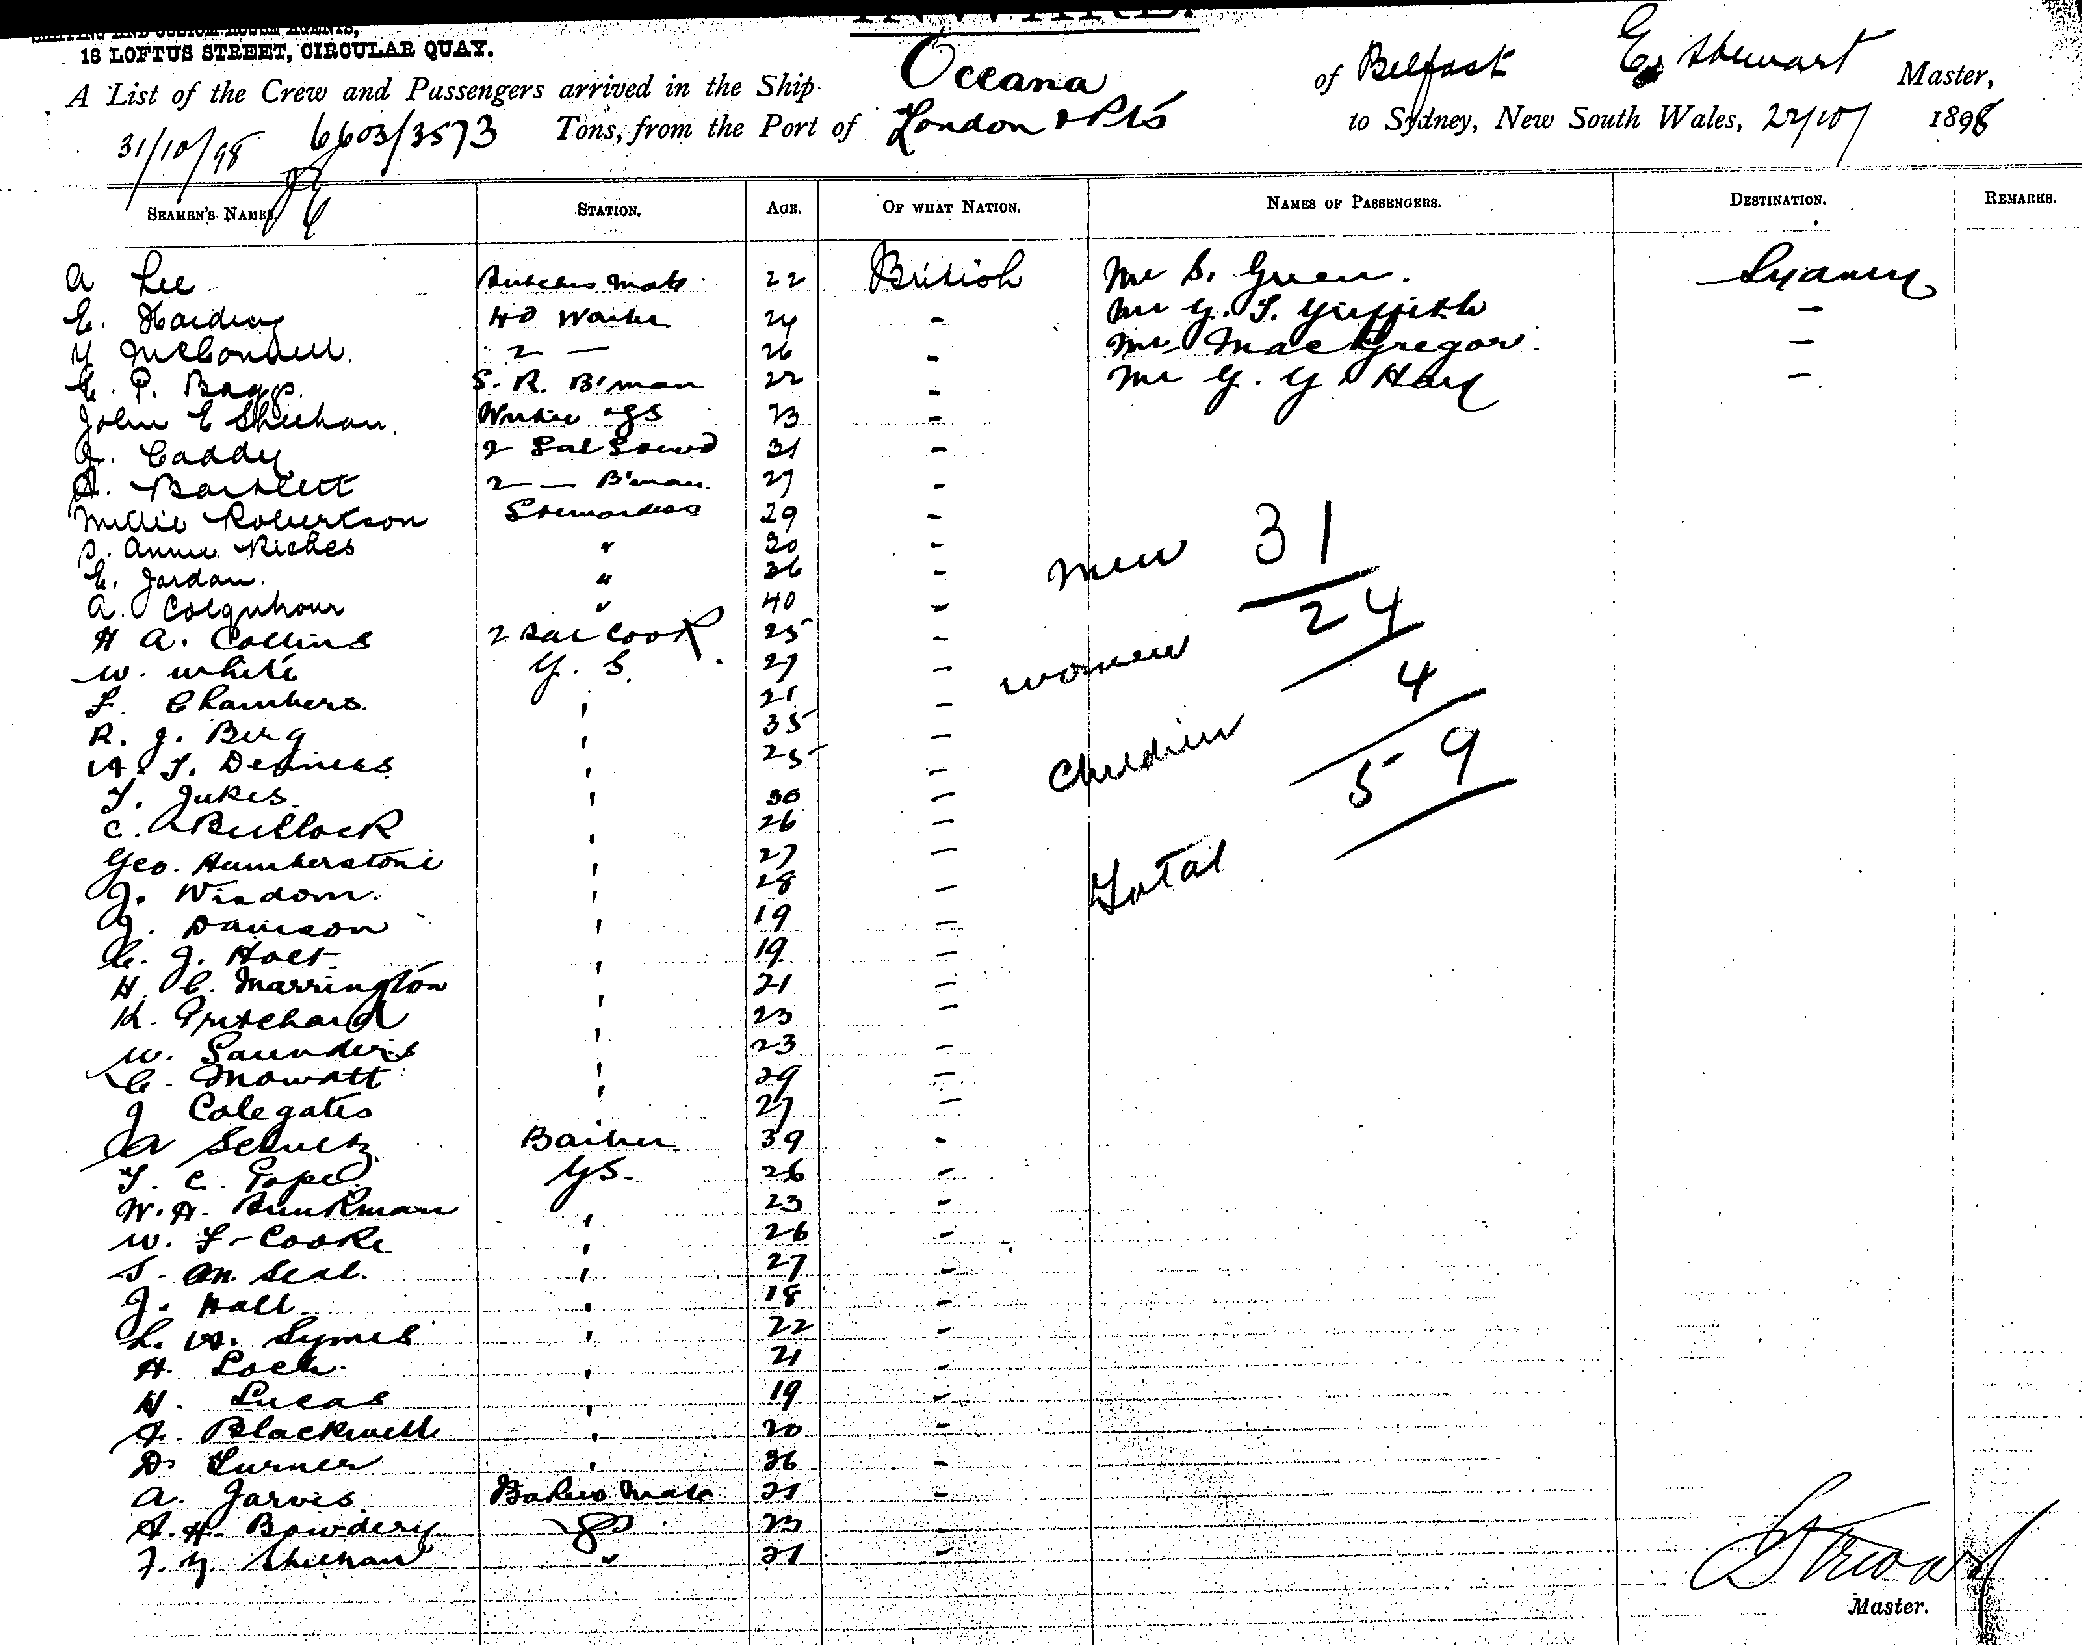 18 LOFTUS STREET, CIRCULAR QUAY.
A List of the Crew and Passengers arrived in the Ship Oceana of Belfast E. Stewart Master,
31/10/98 6603/3573 Tons, from the Port of London & Pts to Sydney, New South Wales, 22/10/ 1898
SEAMEN'S NAMES. STATION. AGE. OF WHAT NATION. NAMES OF PASSENGERS. DESTINATION. REMARKS.
A Lee Butchers Mate 22 British Mr S. Green. Sydney
E. Harding HD Waiter 24 - Mr G. S. Griffith -
McConnell. 2 — 26 - MacGregor. -
E. P. Bags. S. R. B'man 22 - Mr G. G. Hay -
John E Sheehan. GS 23 -
Caddy 2 Sal Stewd 31 -
A. Bartlett 2 — B'man. 27 -
Millie Robertson Stewardess 29 -
S. Annie Riches " 30 -
E. Jordan. " 36 -
A. Colquhour " 40 -
H A. Collins 2 Cook 25 -
W. White G. S. 27 -
L. Chambers. ' 21 -
R. J. Berg ' 35 -
' 25 -
T. Jukes. ' 30 -
C. A Bullock ' 26 -
Geo. Humberstone ' 27 -
J. Wisdom. ' 28 -
J. Davison ' 19 -
C. J. Holt ' 19 -
H. C. Marrington ' 21 -
K. Pritchard ' 23 -
W. Saunders ' 23 -
C. Mowatt ' 29 -
J Colegates ' 27 -
A Schultz Barber 39 -
T. C. Pope. GS. 26 -
W. A. Bunkman ' 23 -
W. F. Cooke ' 26 -
S. M. Seal. ' 27 -
J. Hall ' 18 -
L. A. Symes ' 22 -
H. Lock. ' 21 -
H. Lucas ' 19 -
F. Blackwell ' 20 -
D. Turner ' 36 -
A. Jarvis. Bakers Mate 21 -
A. H. Bowdery GS 23 -
Sheehan " 21 -
Men 31
Women 24
Children 4
Total 59
E Stewart
Master.